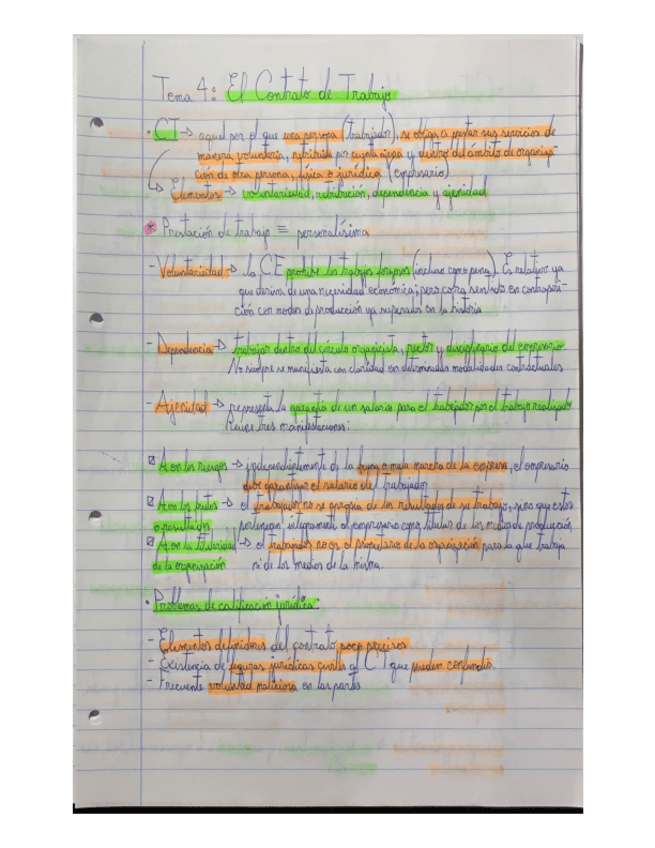 Tema 4: El Contrato de Trabajo
· CT → aquel por el que una persona (trabajador), se obliga a prestar sus servicios de
manera voluntaria, retribuida por cuenta ajena y dentro del ámbito de organiza-
ción de otra persona, física o jurídica (empresario)
↳ Elementos → voluntariedad, retribución, dependencia y ajenidad
* Prestación de trabajo ≡ personalísima
- Voluntariedad → la CE prohíbe los trabajos forzosos (incluso como pena). Es relativo ya
que deriva de una necesidad económica; pero cobra sentido en contraposi-
ción con modos de producción ya superados en la historia
- Dependencia → trabajar dentro del círculo organicista, rector y disciplinario del empresario.
No siempre se manifiesta con claridad en determinadas modalidades contractuales
- Ajenidad → representa la garantía de un salario para el trabajador por el trabajo realizado
Reúne tres manifestaciones:
A en los riesgos → independientemente de la buena o mala marcha de la empresa, el empresario
debe garantizar el salario del trabajador
A en los frutos → el trabajador no se apropia de los resultados de su trabajo, sino que estos
o resultados pertenecen íntegramente al empresario como titular de los medios de producción
A en la titularidad → el trabajador no es el propietario de la organización para la que trabaja
de la organización ni de los medios de la misma.
· Problemas de calificación jurídica:
- Elementos definidores del contrato poco precisos
- Existencia de figuras jurídicas al CT que pueden confundir.
- Frecuente voluntad maliciosa en las partes